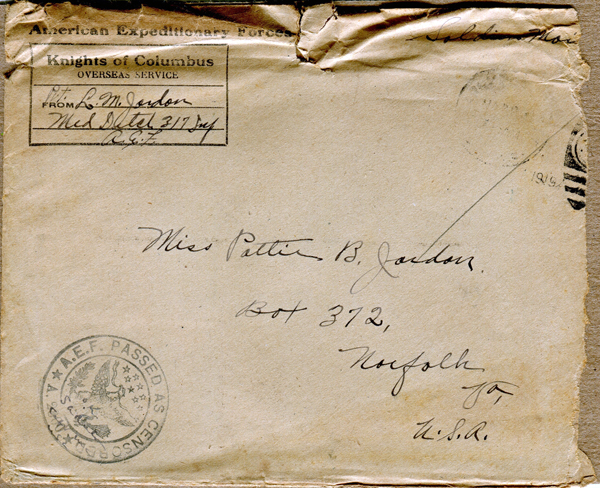 American Expeditionary Forces
Soldier's Mail
Knights of Columbus
OVERSEAS SERVICE
Pvt.
FROM L. M. Jordon
Med Detch 317 Inf
A.E.F.
1919
Miss Pattie B. Jordon.
Box 372,
Norfolk
Va,
U.S.A.
A.E.F. PASSED AS CENSORED